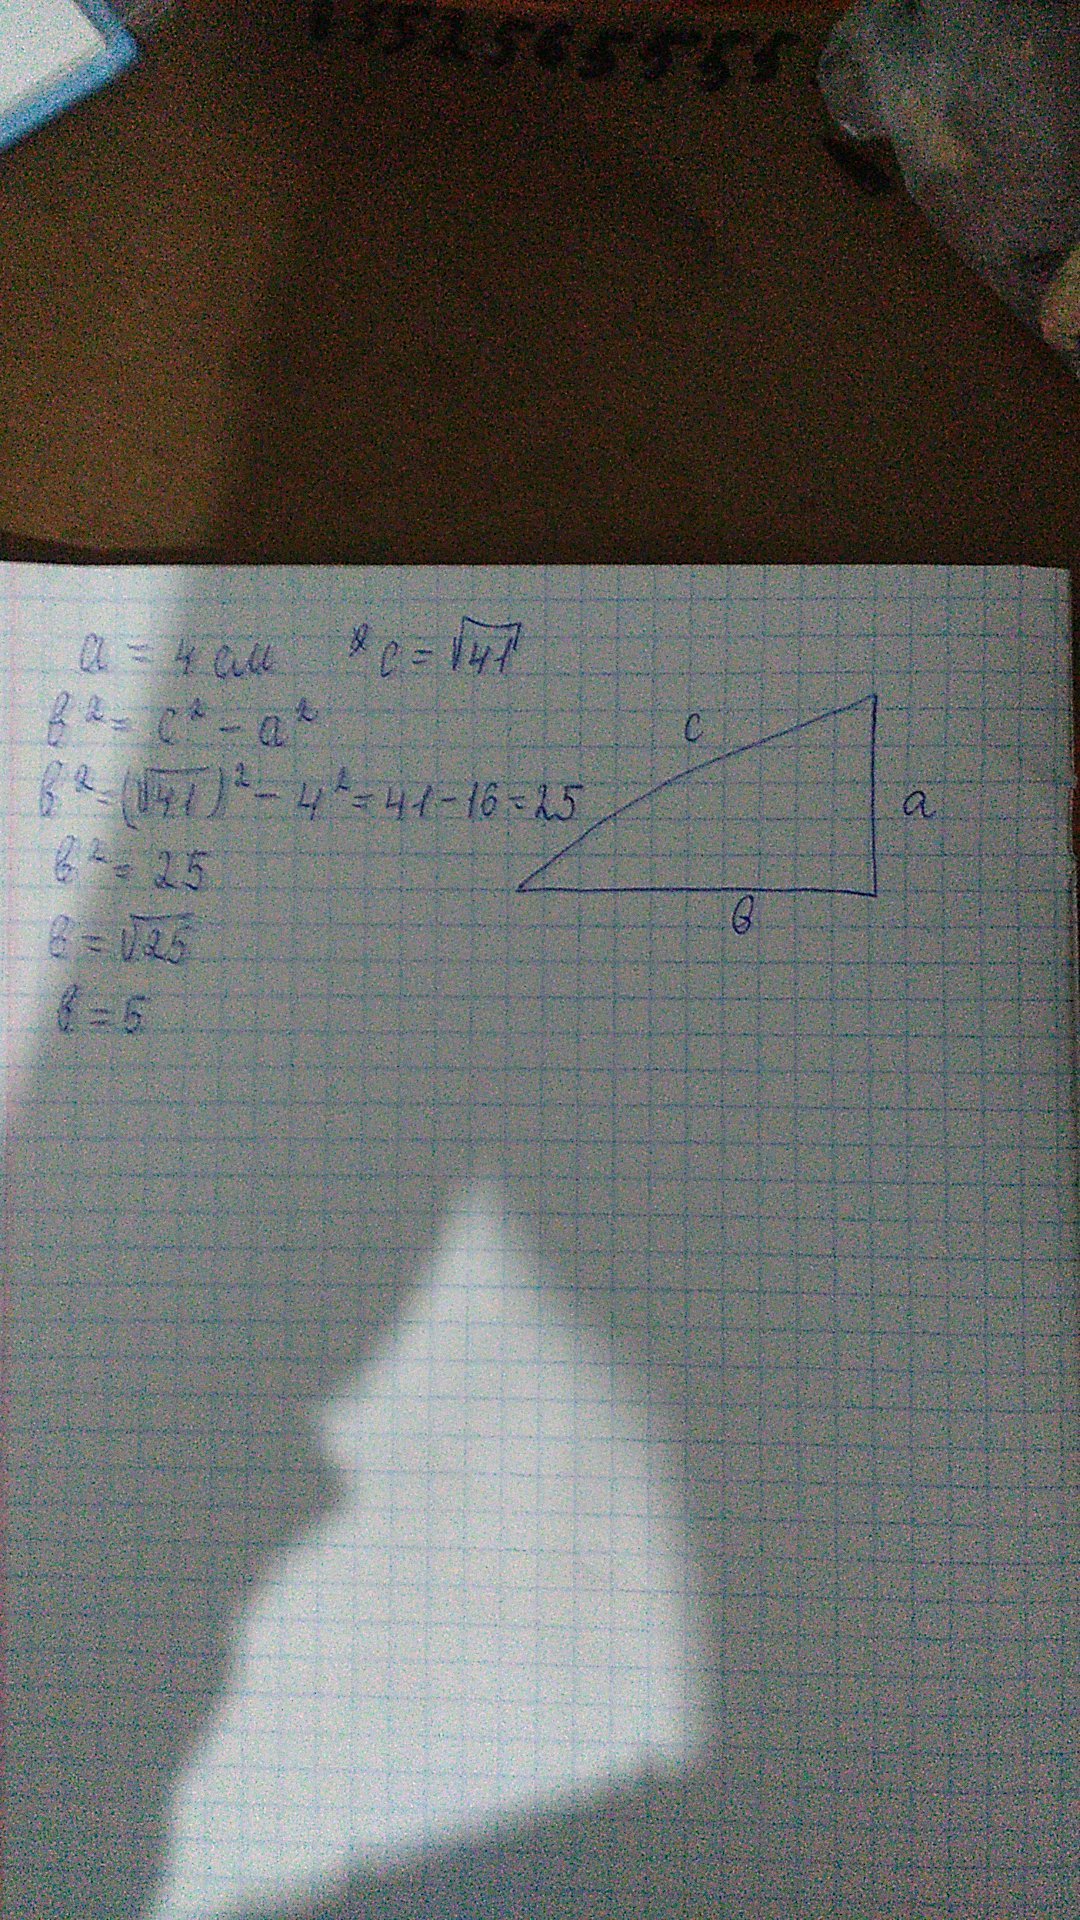 a = 4 см c = √41
в² = c² - a²
в² = (√41)² - 4² = 41 - 16 = 25
в² = 25
в = √25
в = 5
c
a
в